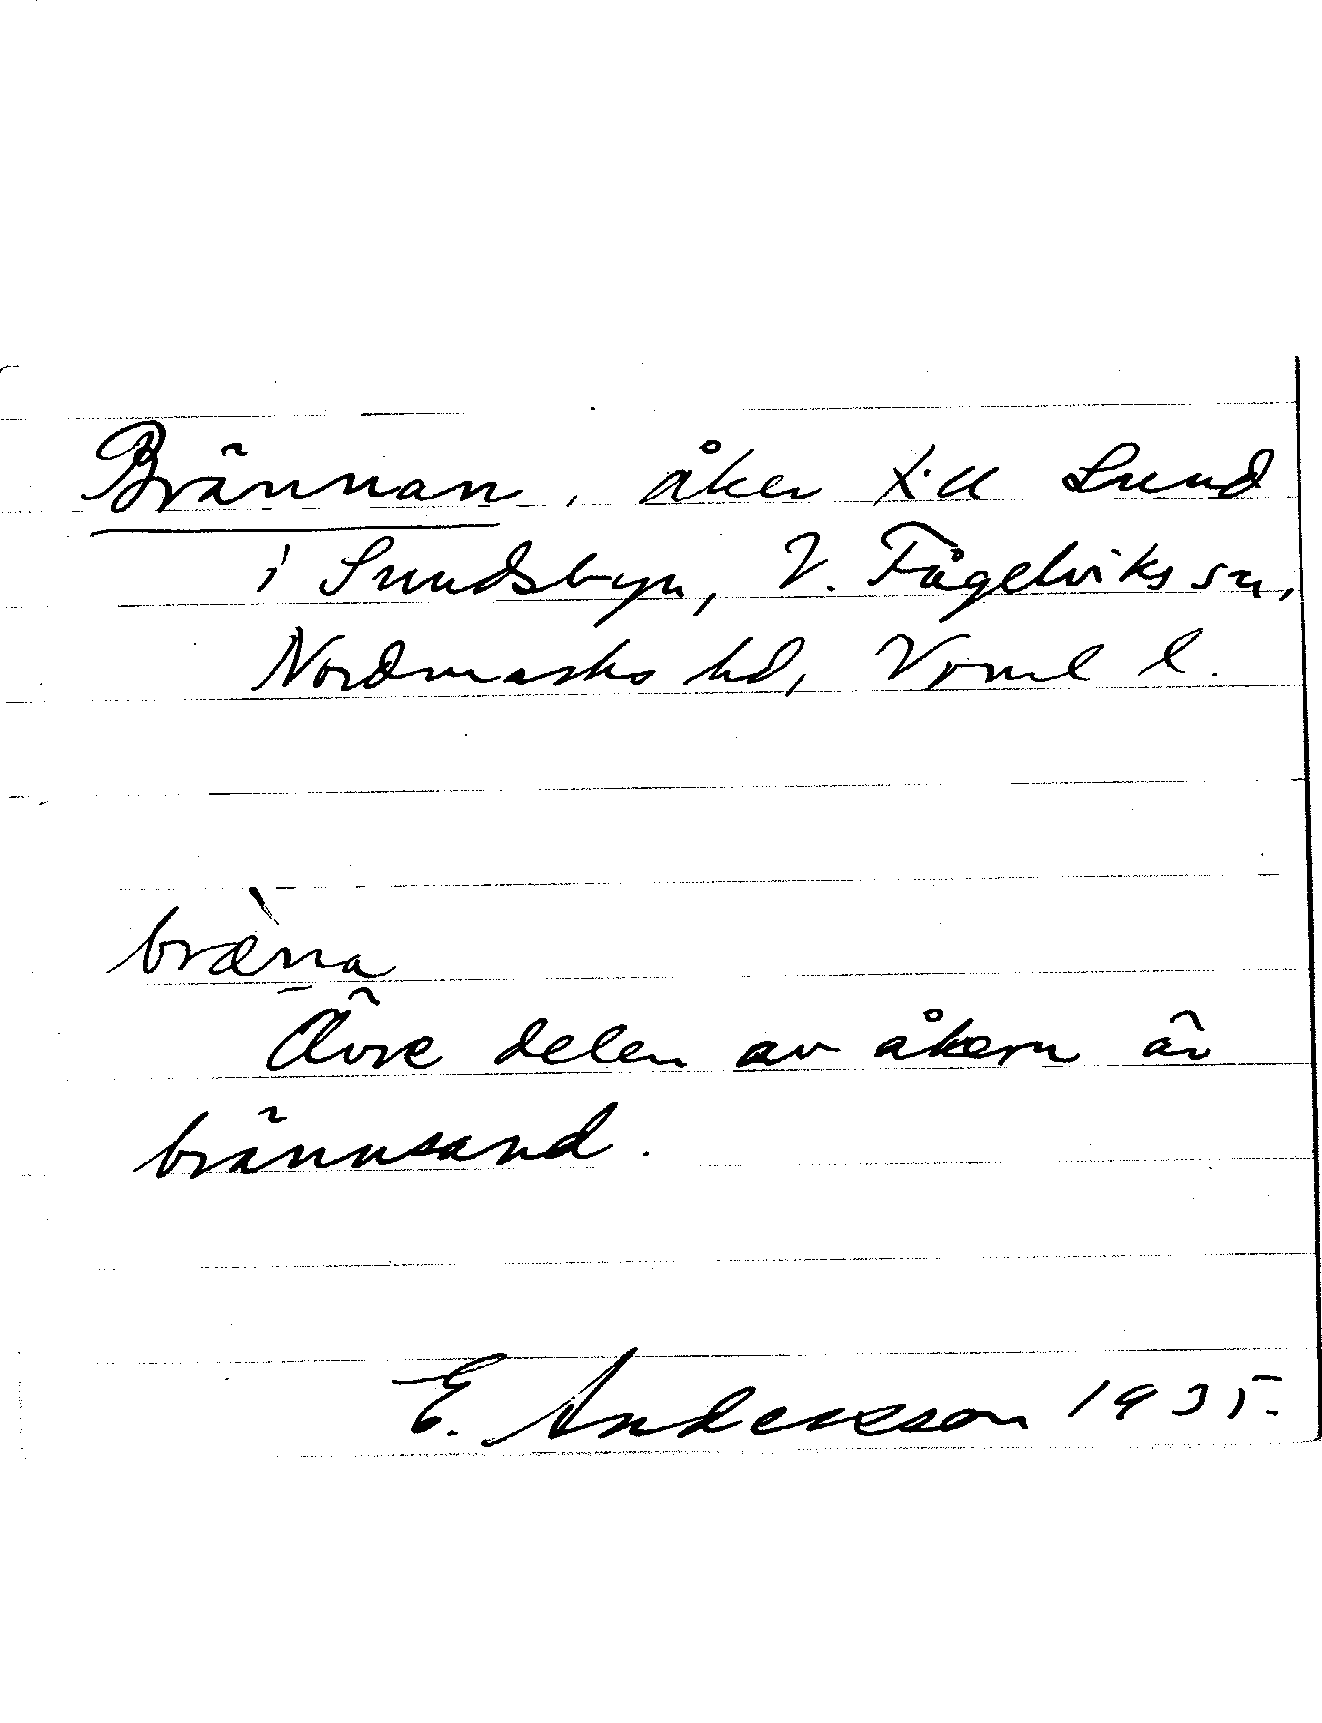 Brännan, åker till Sund
i Sundsbyn, V. Fågelviks sn,
Nordmarks hd, Vrml l.
bræ̀na
Övre delen av åkern är
brännsand.
E. Andersson 1935.